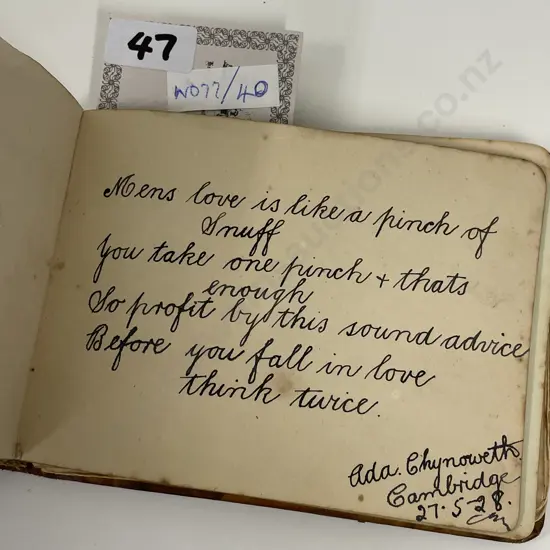 47
W077/40
Mens love is like a pinch of
Snuff
You take one pinch + thats
enough
So profit by this sound advice
Before you fall in love
think twice.
Ada. Chynoweth
Cambridge
27-5-28.